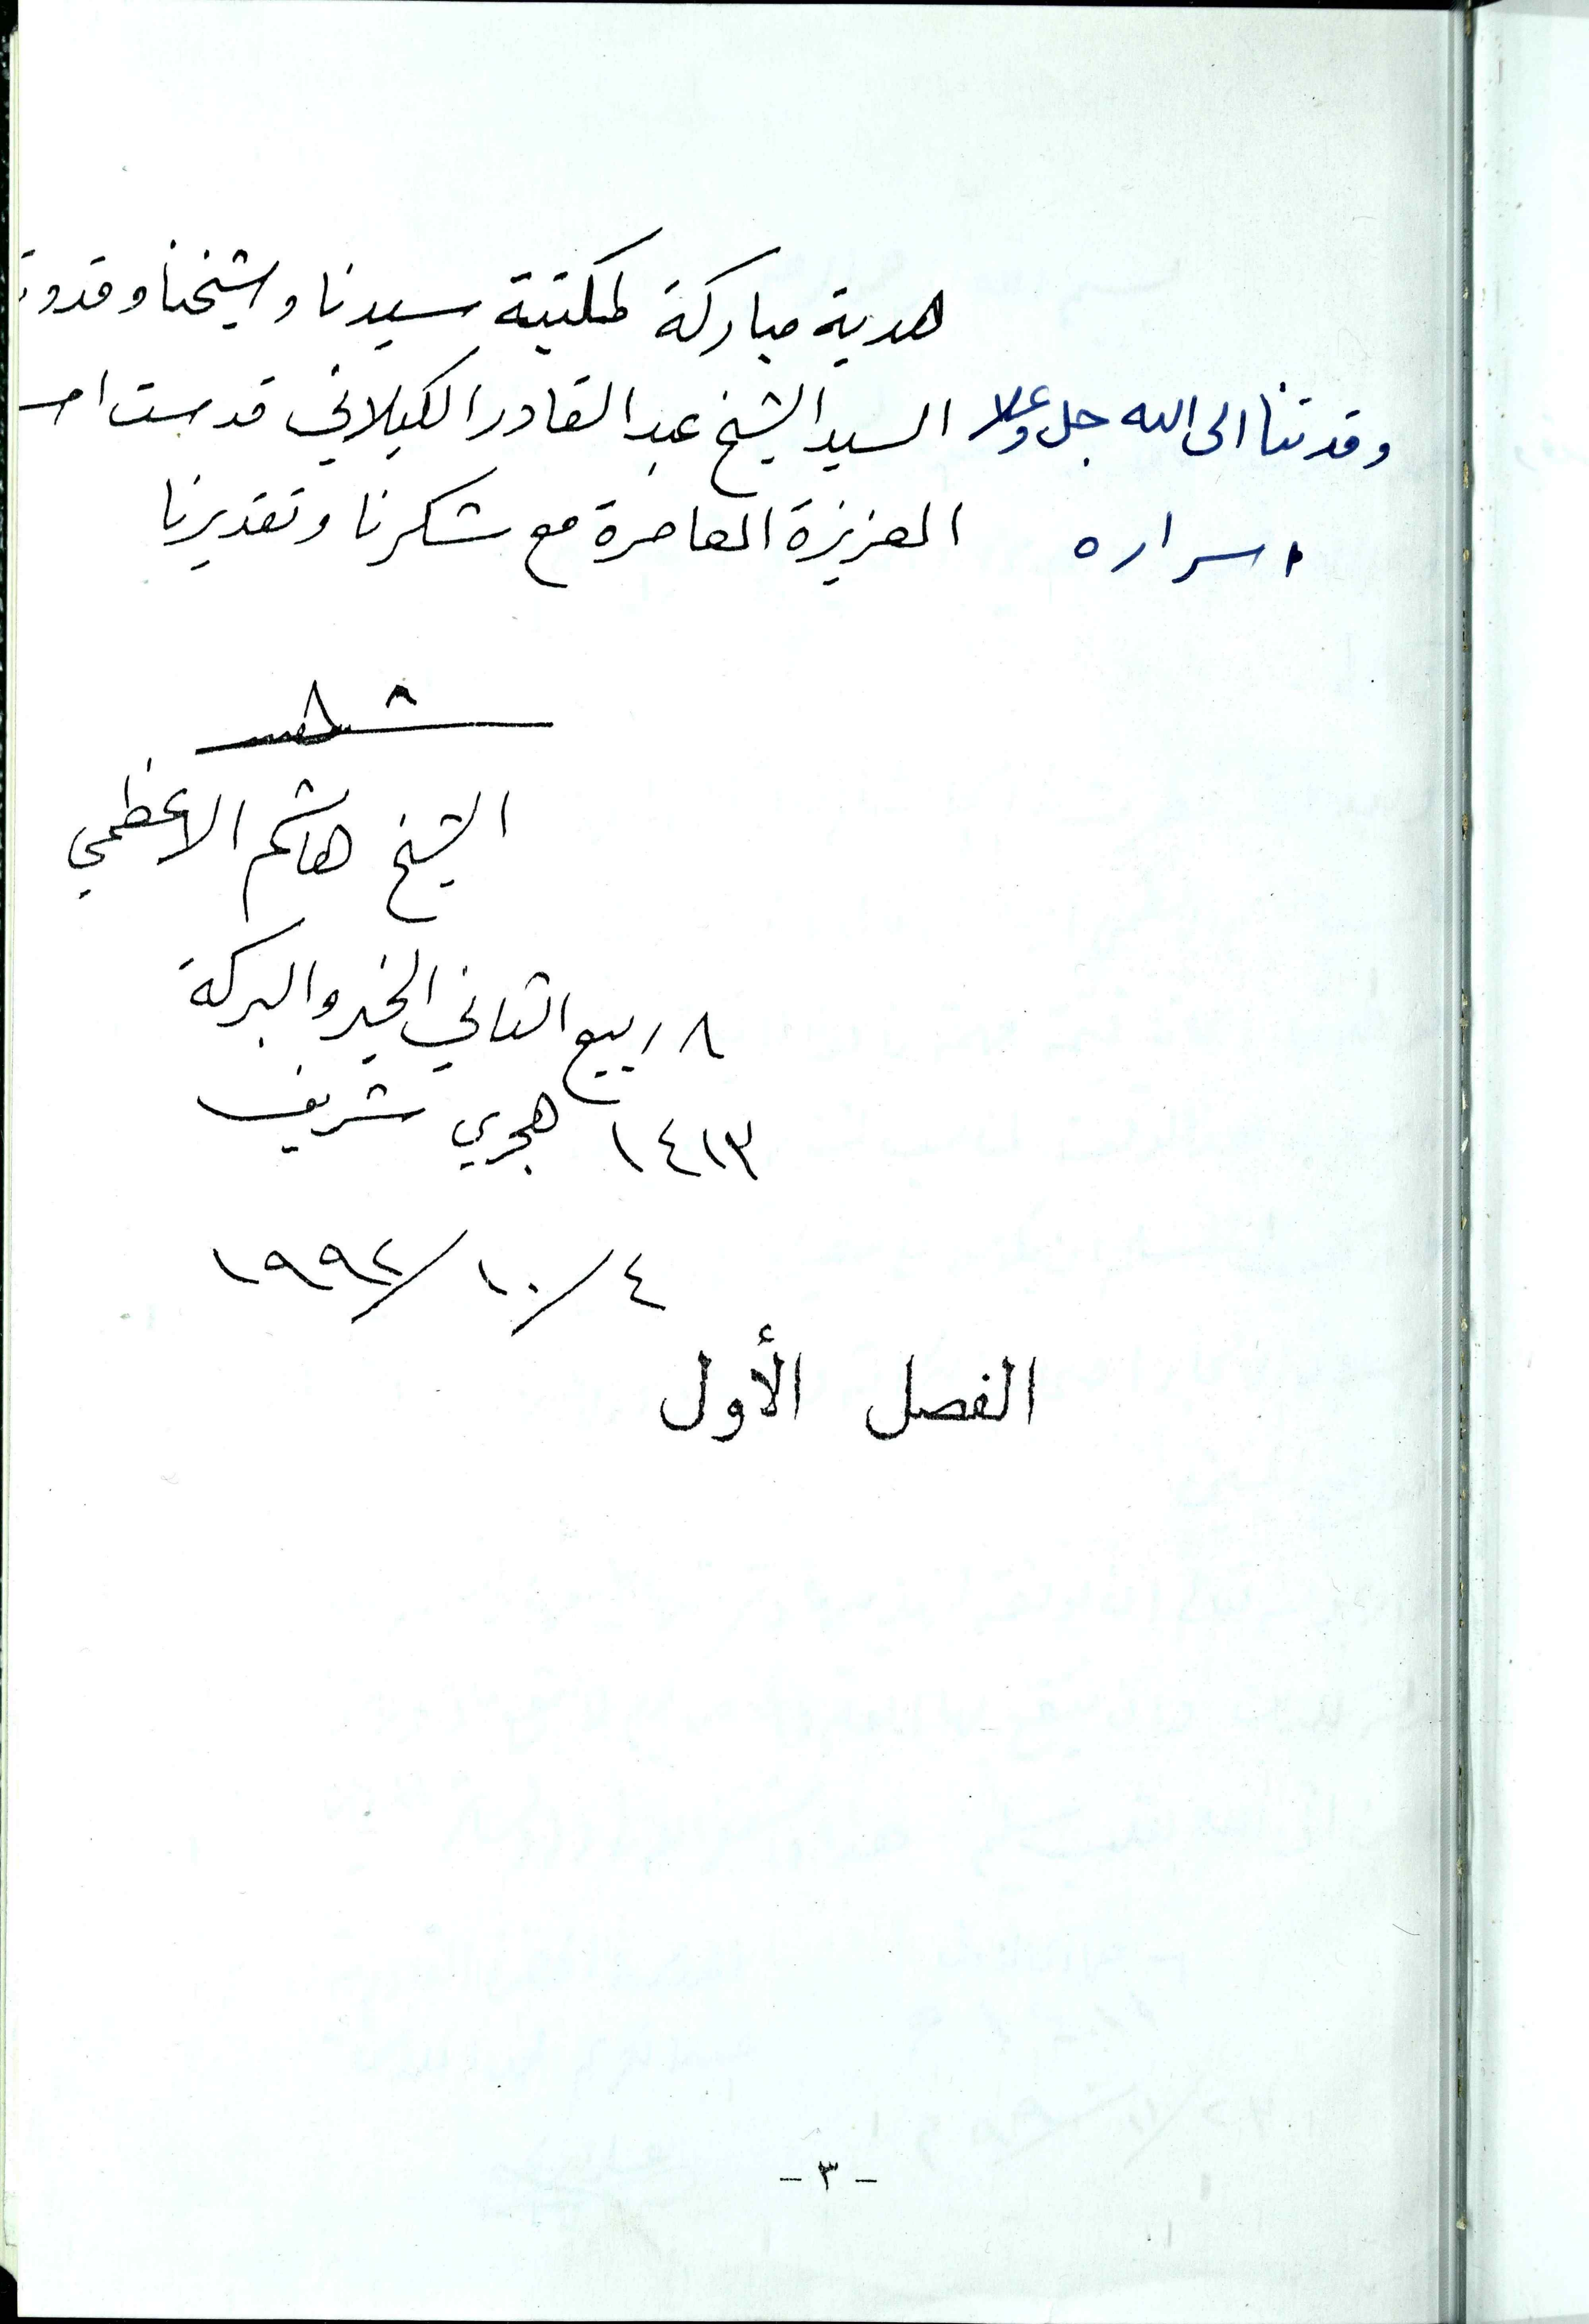 هدية مباركة لمكتبة سيدنا وشيخنا وقدوت
وقدتنا الى الله جل وعلا السيد الشيخ عبد القادر الكيلاني قدست اسـ
اسراره العزيزة العامرة مع شكرنا وتقديرنا
الشيخ هاشم الاعظمي
٨ ربيع الثاني الخير والبركة
١٤١٣ هجري شريف
٤/١٠/١٩٩٢
الفصل الأول
- ٣ -